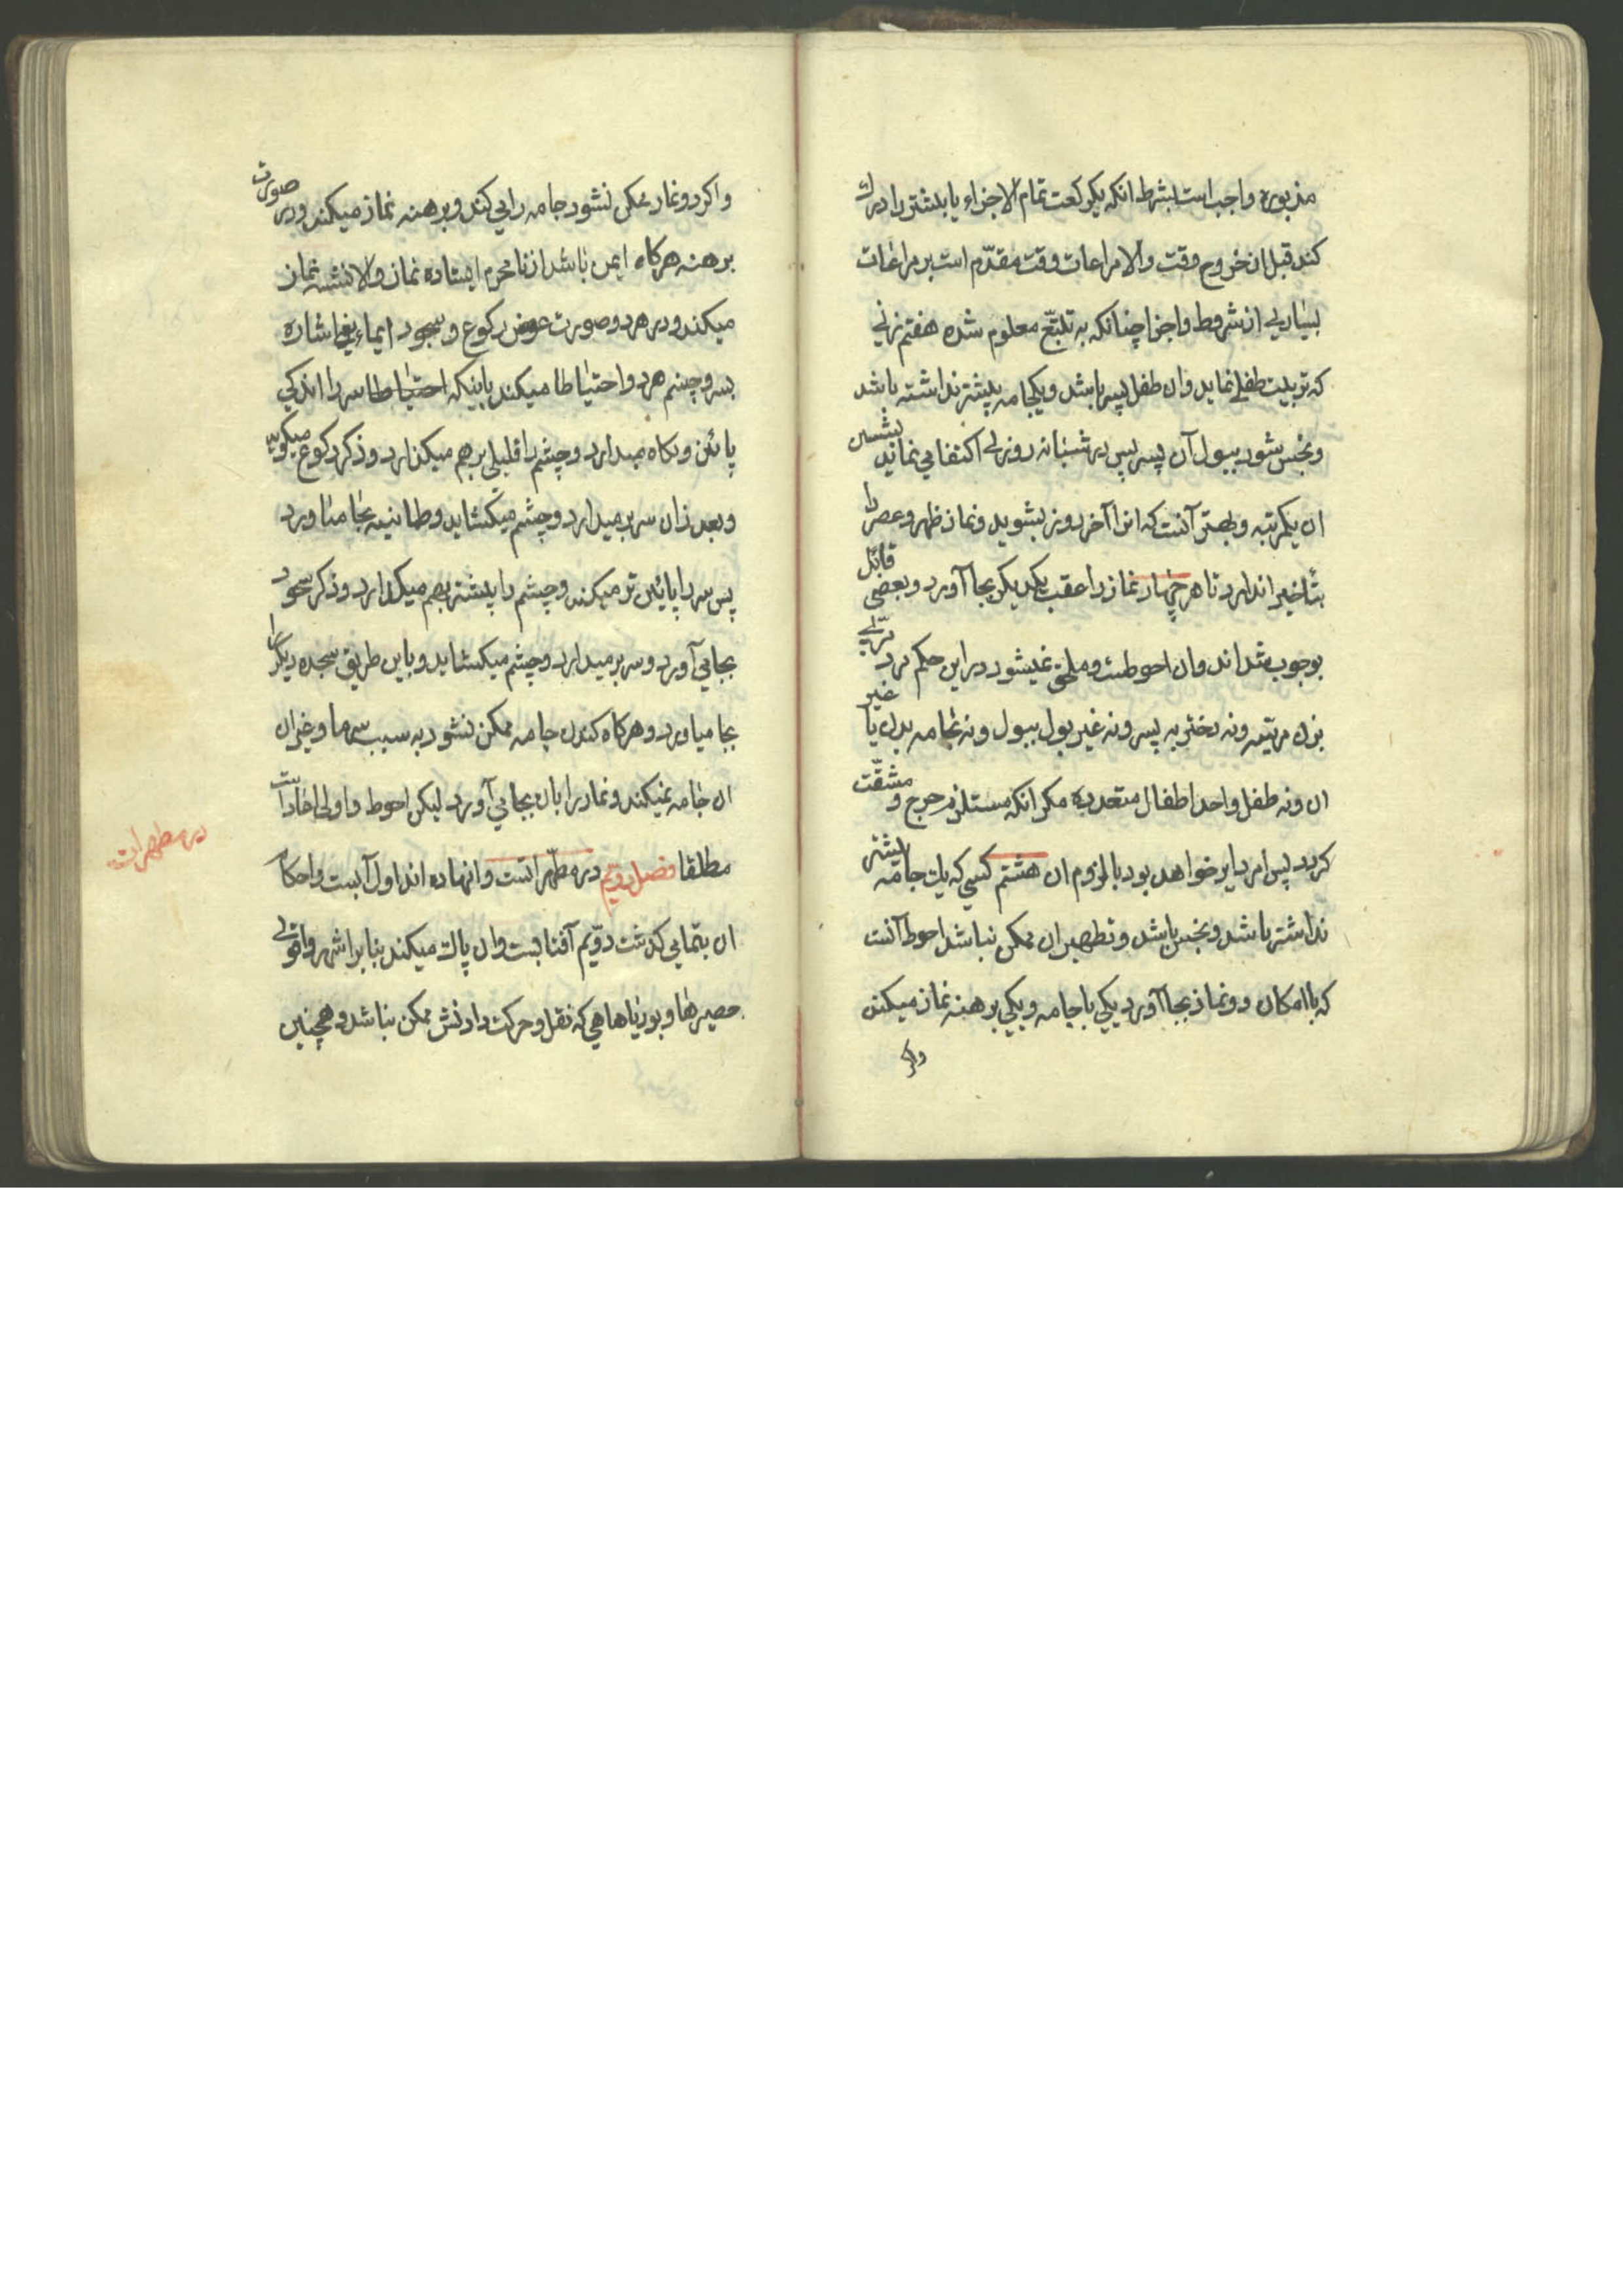 مذبوره واجب است بشرط انکه یکرکعت تمام الاجزاء یا بیشتر را ادراک
کند قبل از خروج وقت والا مراعات وقت مقدّم است بر مراعات
بسیاری از شروط واجزا چنانکه به تتبّع معلوم شده هفتم زنی
که تربیت طفلی نماید وان طفل پسر باشد ویکجامه بیشتر نداشته باشد
ونجس شود ببول آن پسر پس در شبانه روزی اکتفا می نماید بشستن
ان یکمرتبه وبهتر آنست که انرا آخر روز بشوید ونماز ظهر وعصر را
بتأخیر اندازد تا هر چهار نماز را عقب یکدیگر بجا آورد وبعضی قائل
بوجوب شده اند وان احوطست وملحق نمیشود در این حکم مرد مربّی
بزن مربّیه ونه دختر به پسر ونه غیر بول ببول ونه بجامه بدن یا غیر
ان ونه طفل واحد اطفال متعدده مکر انکه مستلزم حرج و مشقّت
کردد پس امر دایر خواهد بود با لزوم ان هشتم کسی که یک جامه بیشتر
نداشته باشد ونجس باشد وتطهیر ان ممکن نباشد احوط آنست
که با امکان دو نماز بجا آورد یکی با جامه ویکی برهنه نماز میکند
واکر
واکر دو نماز ممکن نشود جامه را می کند وبرهنه نماز میکند ودر صورت
برهنه هرکاه ایمن باشد از نامحرم ایستاده نماز والا نشسته نماز
میکند ودر هر دو صورت عوض رکوع وسجود ایماء یعنی اشاره
بسر وچشم هر دو احتیاطا میکند باینکه احتیاطا سر را اندکی
پائین ونکاه میدارد وچشم را قلیلی بر هم میکذارد وذکر رکوع میکوید
وبعد از ان سر بر میدارد وچشم میکشاید وطمانینه بجا میاورد
پس سر را پائین تر میکند وچشم را بیشتر بهم میکذارد وذکر سجود
بجا می آورد وسر بر میدارد وچشم میکشاید وباین طریق سجده دیکر را
بجا میاورد وهرکاه کندن جامه ممکن نشود به سبب سرما وغیر ان
ان جامه نمیکند ونماز را بان بجا می آورد لیکن احوط واولی اعاداست
مطلقا فصل دویّم در مطهّراتست وانها ده اند اول آبست واحکام
ان بتمامی کذشت دوّیم آفتابست وان پاک میکند بنا بر اشهر واقوی
حصیرها وبوریاهاهی که نقل وحرکت دادنش ممکن نباشد وهمچنین
در مطهرات